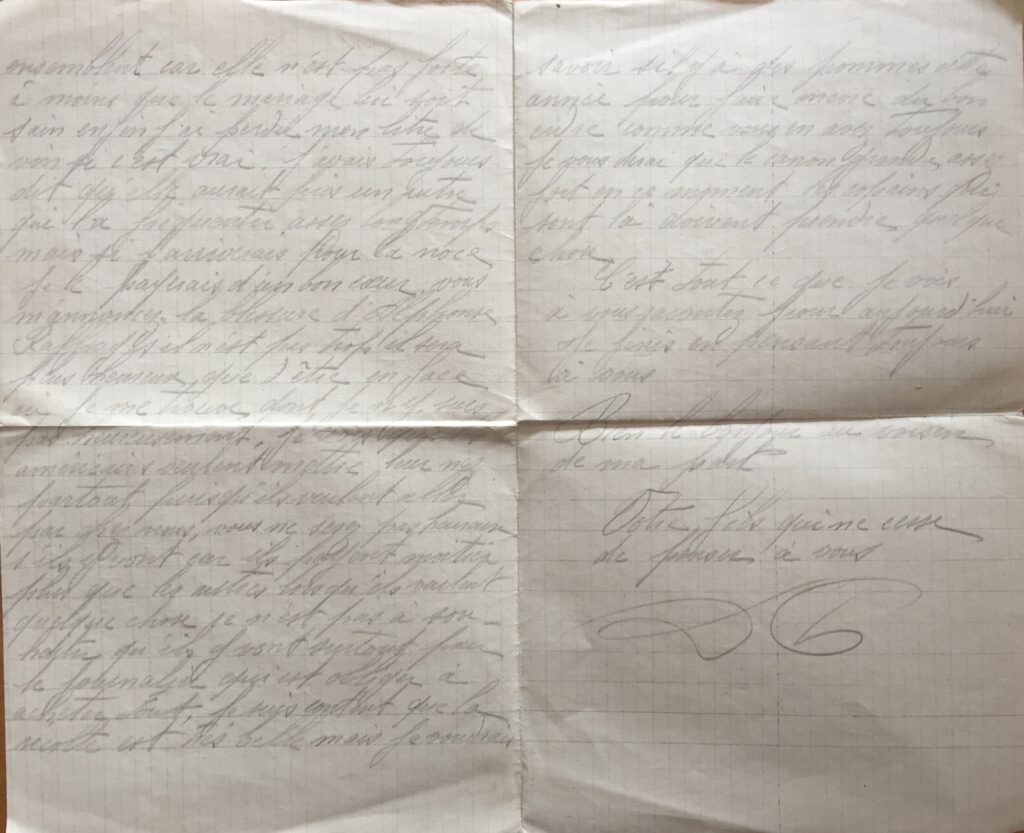 ensemblent car elle n'est pas forte
à moins que le mariage lui soit
sain enfin j'ai perdu mon litre de
vin si c'est vrai, j'avais toujours
dit qu'elle aurait pris un autre
qui l'a fréquentée assez longtemps
mais si j'arriverais pour la noce
je le paierais d'un bon cœur, vous
m'annoncez la blessure d'Alphonse
il n'est pas trop il sera
plus heureux, que d'être en face
ou je me trouve dont je n'y suis
pas heureusement, je vois que les
américains veulent mettre leur nez
partout puisqu'ils veulent aller
par chez nous, vous ne serez pas heureux
s'ils y vont car ils payent moitier
plus que les autres lorsqu'ils veulent
quelque chose ce n'est pas à sou-
haiter qu'ils y vont surtout pour
le journalier qui est obliger à
acheter tout, je suis content que la
récolte est très belle mais je voudrais
savoir s'il y a des pommes cette
année pour faire même du bon
cidre comme vous en avez toujours
je vous dirai que le canon gronde, assez
fort en ce moment les copains qui
sont là doivent prendre quelque
chose
C'est tout ce que je vois
à vous raconter pour aujourd'hui
je finis en pensant toujours
à vous
Bien le bonjour au voisin
de ma part
Votre fils qui ne cesse
de penser à vous